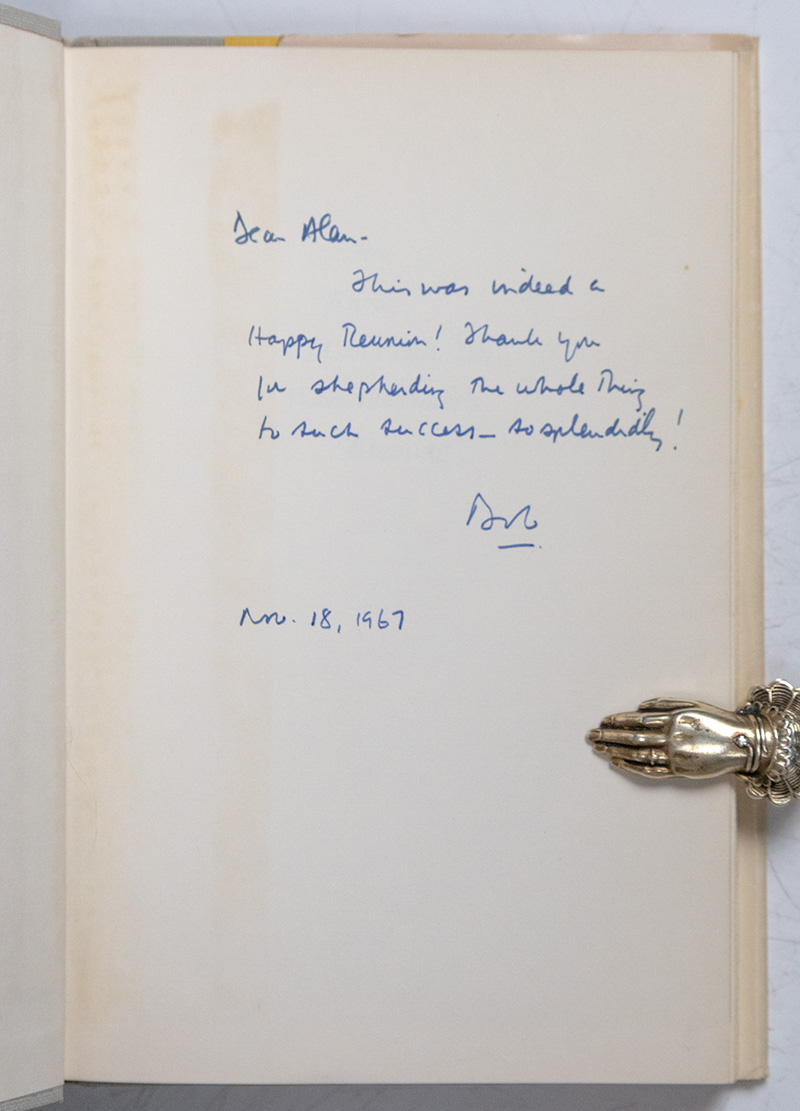 Dear Alan-
This was indeed a
Happy Reunion! Thank you
for shepherding the whole thing
to such success - so splendidly!
Bob
Nov. 18, 1967